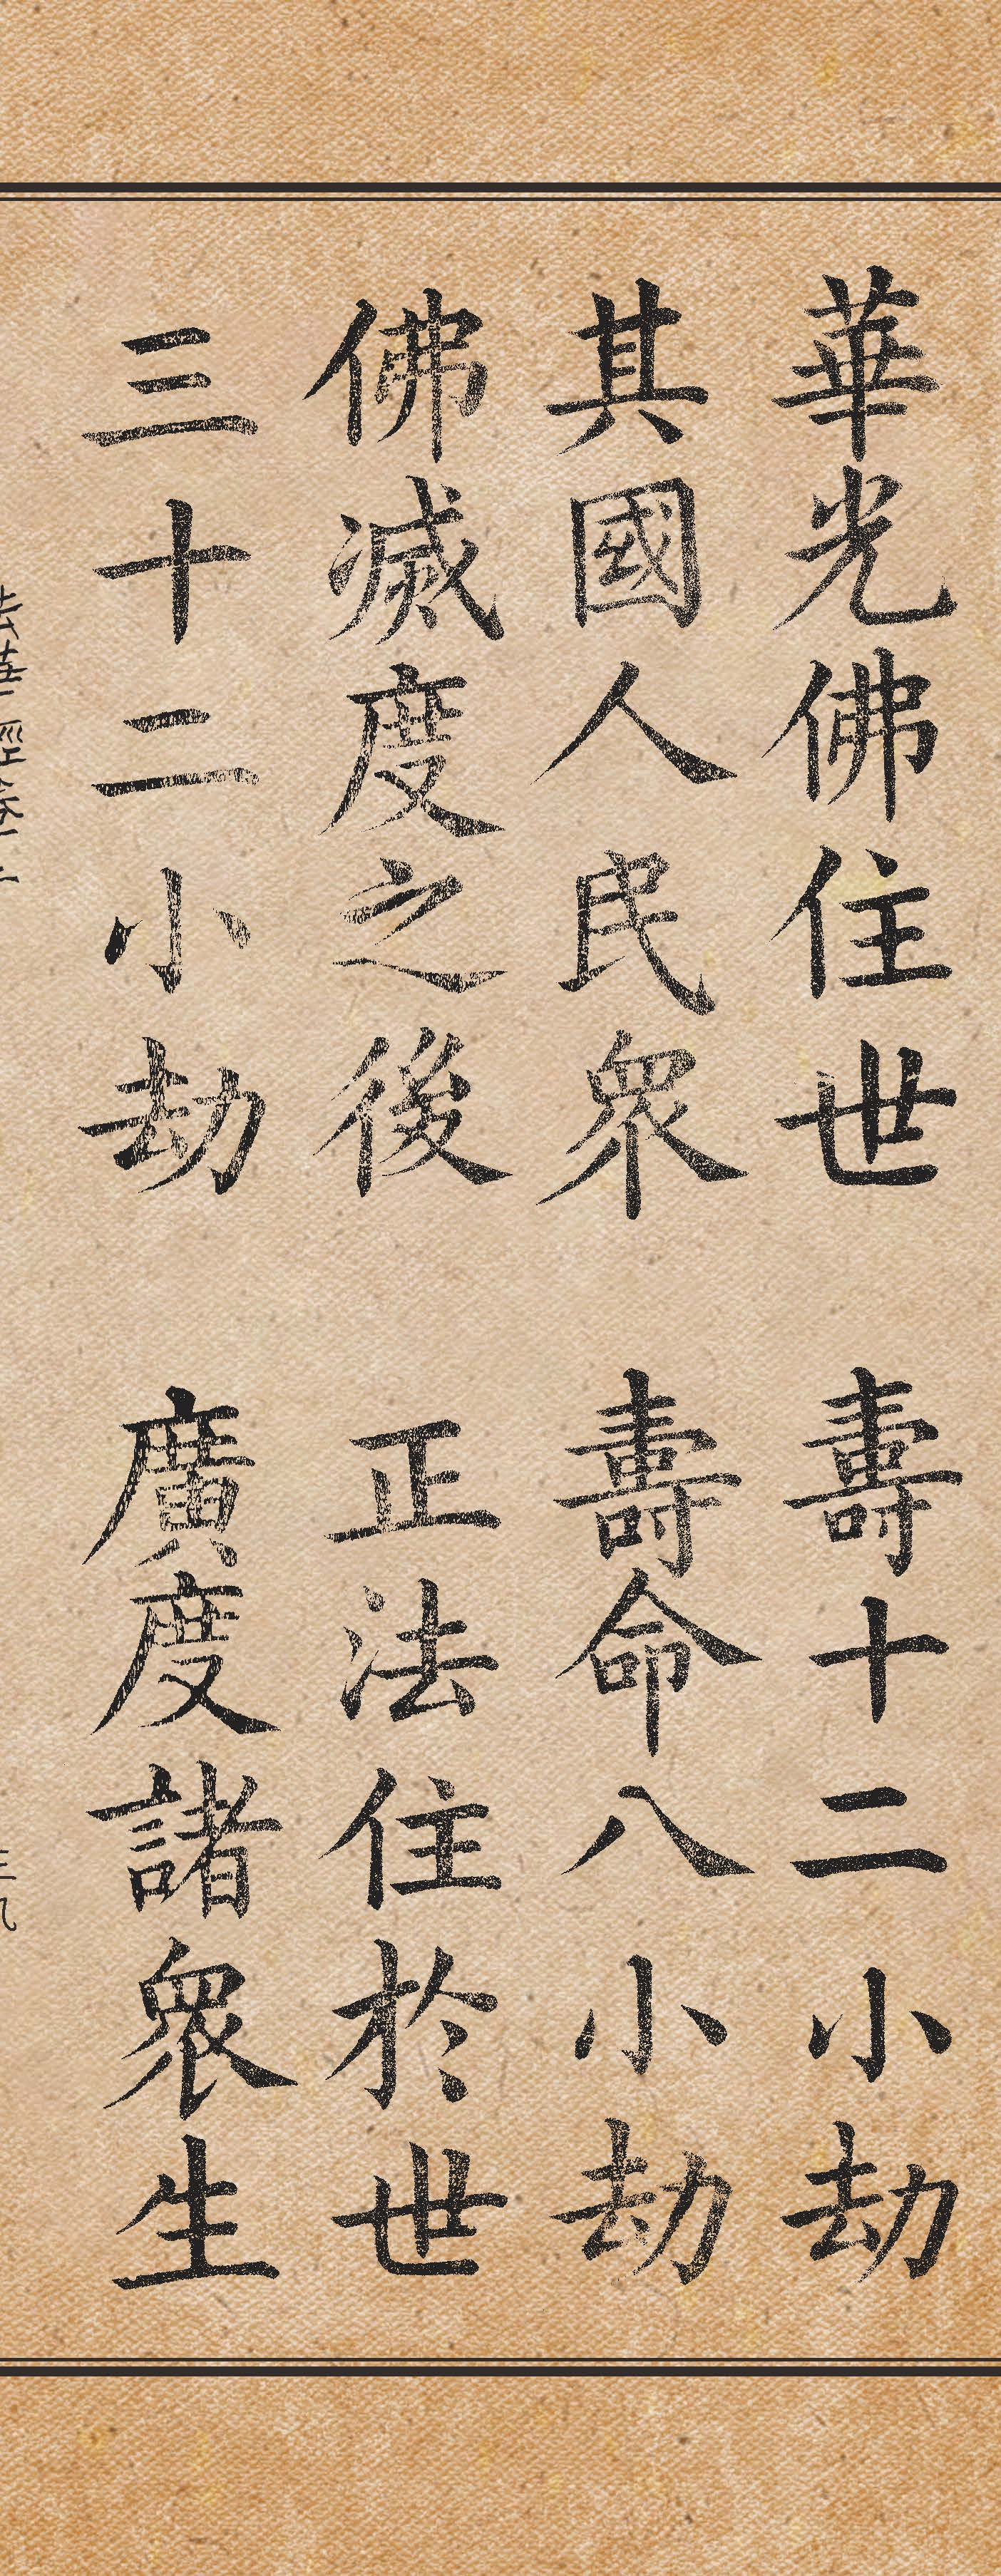 華光佛住世 壽十二小劫
其國人民衆 壽命八小劫
佛滅度之後 正法住於世
三十二小劫 廣度諸衆生